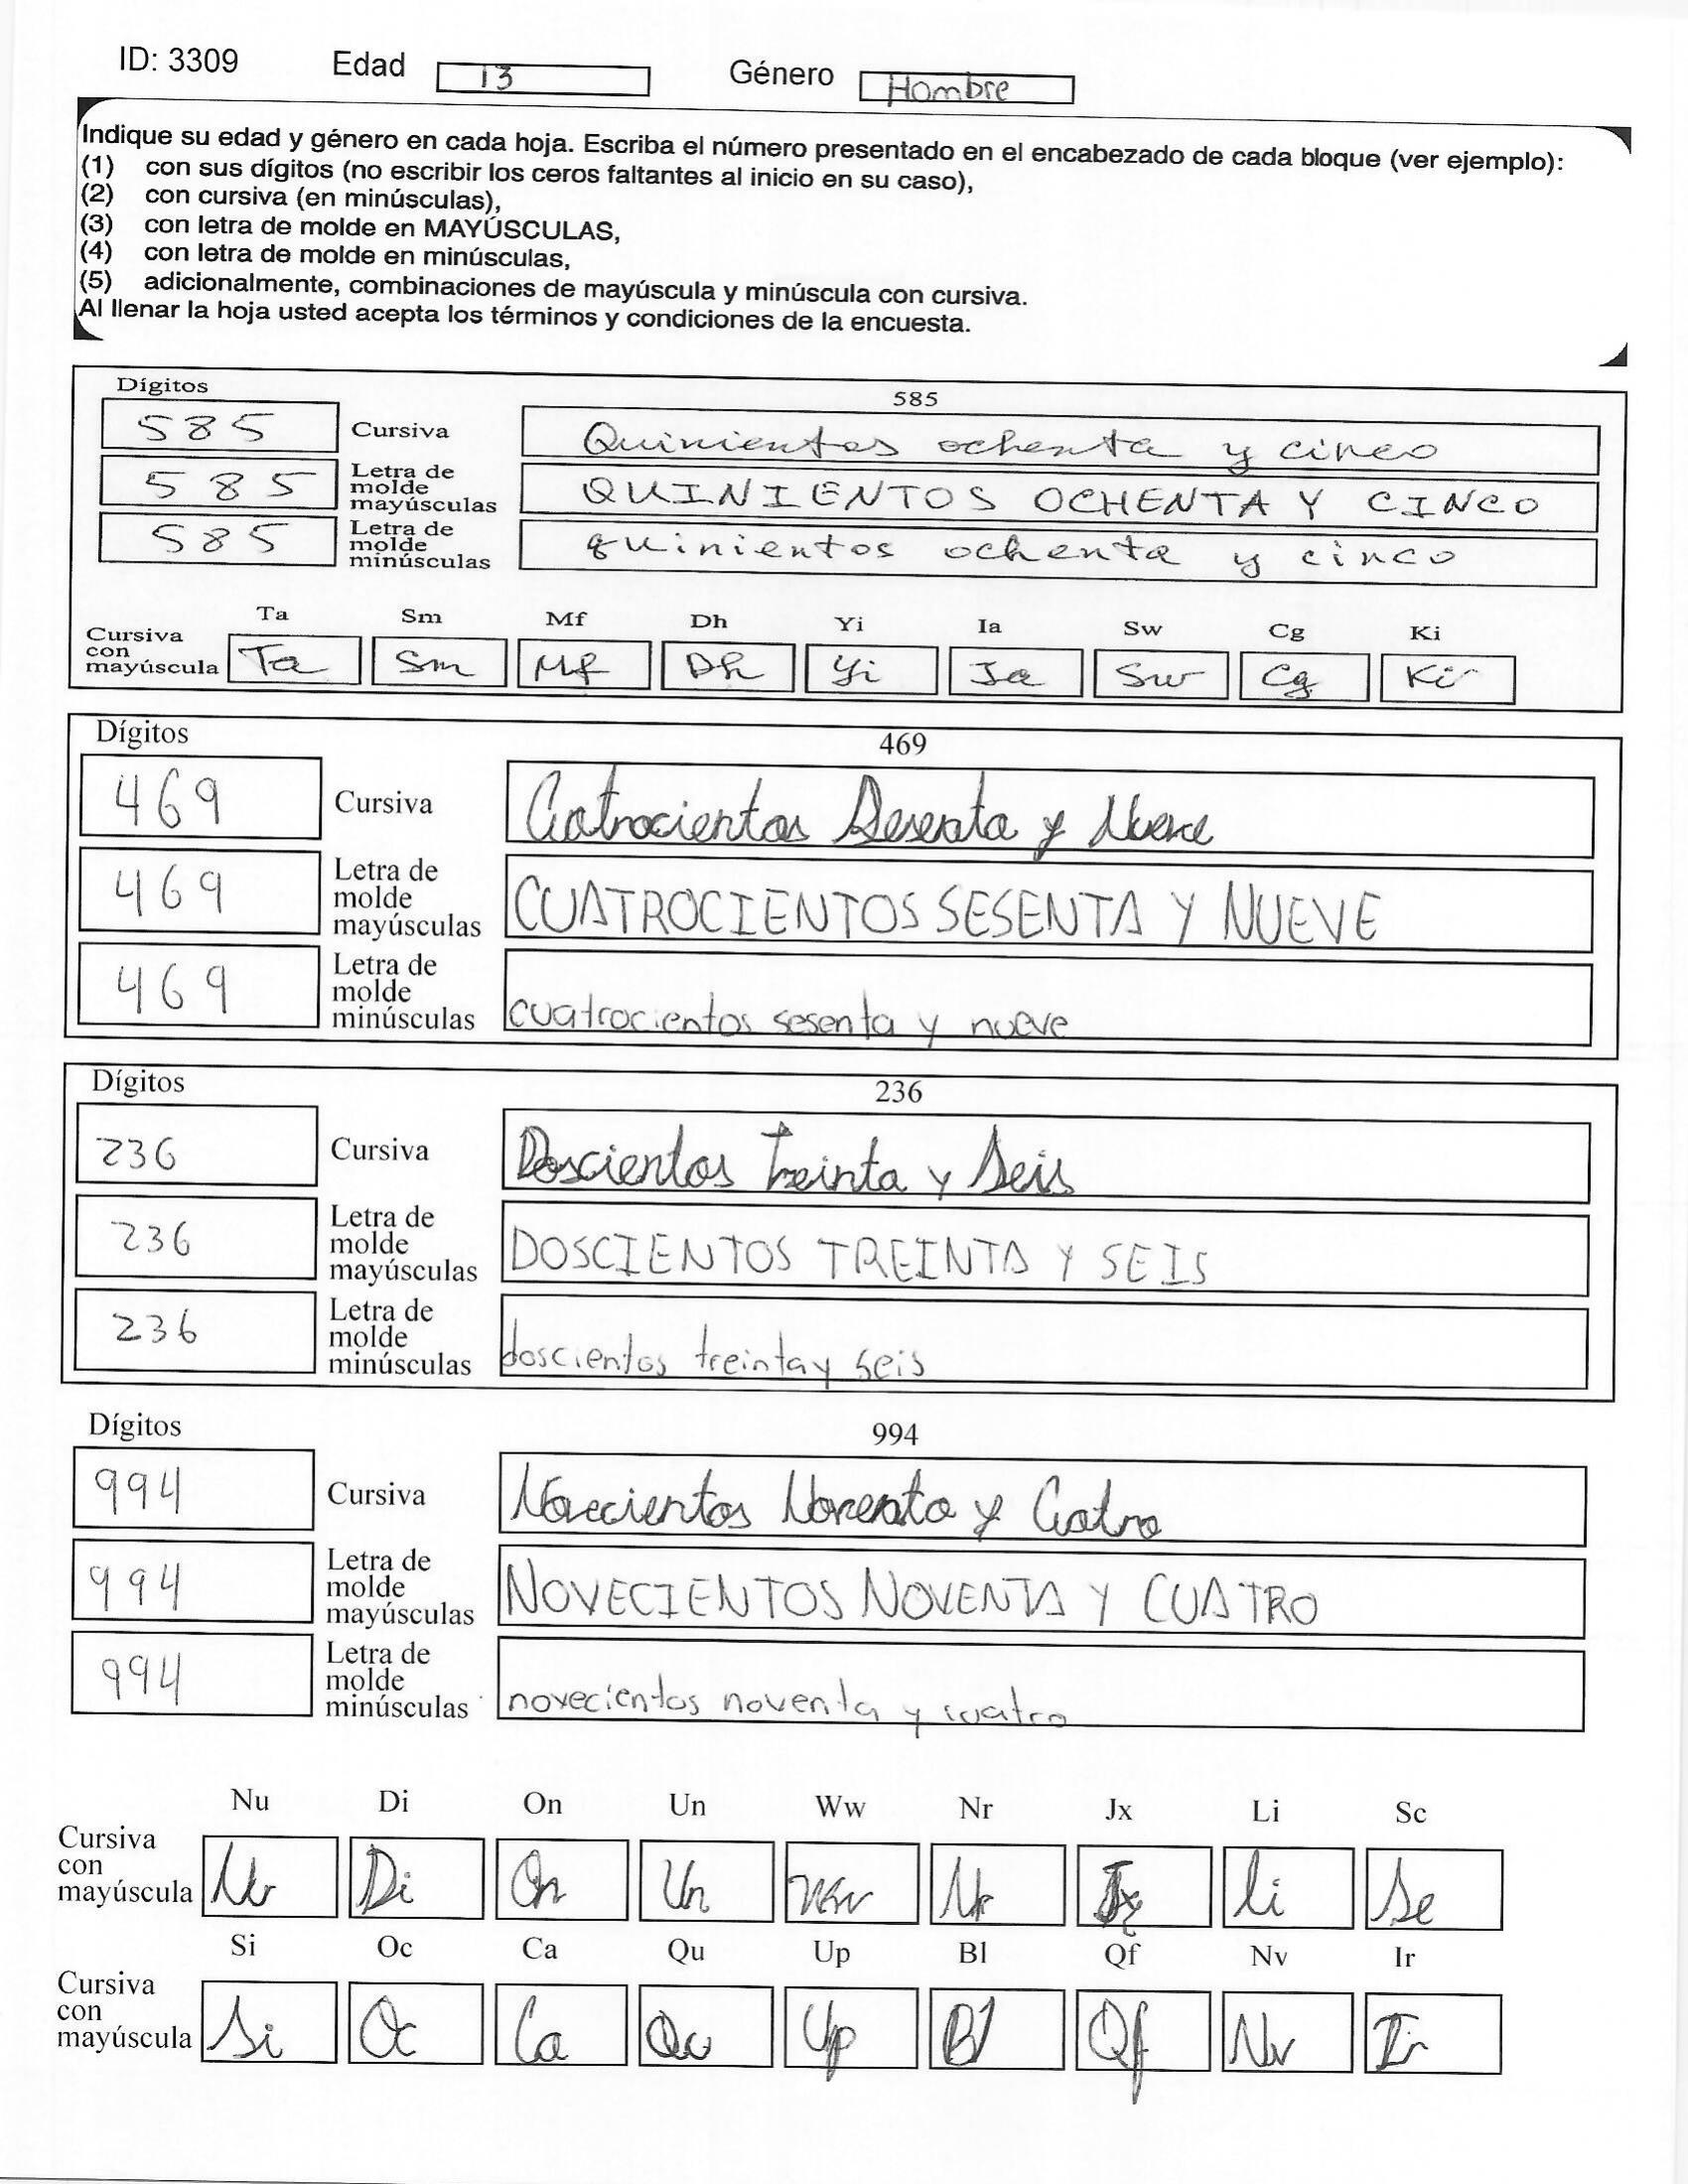 ID: 3309 Edad 13 Género Hombre
Indique su edad y género en cada hoja. Escriba el número presentado en el encabezado de cada bloque (ver ejemplo):
(1) con sus dígitos (no escribir los ceros faltantes al inicio en su caso),
(2) con cursiva (en minúsculas),
(3) con letra de molde en MAYÚSCULAS,
(4) con letra de molde en minúsculas,
(5) adicionalmente, combinaciones de mayúscula y minúscula con cursiva.
Al llenar la hoja usted acepta los términos y condiciones de la encuesta.
Dígitos 585
585 Cursiva Quinientos ochenta y cinco
585 Letra de molde mayúsculas QUINIENTOS OCHENTA Y CINCO
585 Letra de molde minúsculas quinientos ochenta y cinco
Ta Sm Mf Dh Yi Ia Sw Cg Ki
Cursiva con mayúscula Ta Sm Mf Dh Yi Ia Sw Cg Ki
Dígitos 469
469 Cursiva Catrocientos Sesenta y Nueve
469 Letra de molde mayúsculas CUATROCIENTOS SESENTA Y NUEVE
469 Letra de molde minúsculas cuatrocientos sesenta y nueve
Dígitos 236
236 Cursiva Doscientos Treinta y Seis
236 Letra de molde mayúsculas DOSCIENTOS TREINTA Y SEIS
236 Letra de molde minúsculas doscientos treinta y seis
Dígitos 994
994 Cursiva Novecientos Noventa y Catro
994 Letra de molde mayúsculas NOVECIENTOS NOVENTA Y CUATRO
994 Letra de molde minúsculas novecientos noventa y cuatro
Nu Di On Un Ww Nr Jx Li Sc
Cursiva con mayúscula Nu Di On Un Ww Nr Jx li Se
Si Oc Ca Qu Up Bl Qf Nv Ir
Cursiva con mayúscula Si Oc Ca Qu Up Bl Qf Nv Ir